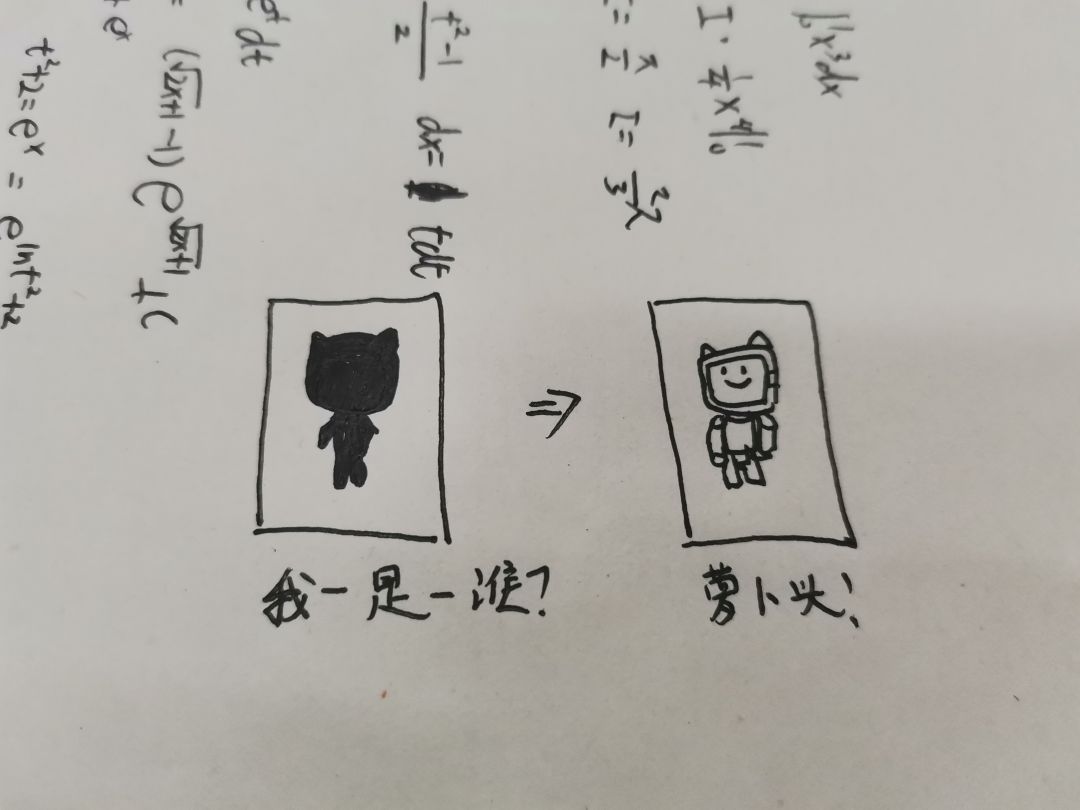 ∫₀¹x³dx
I · ¼x⁴|₀¹
I = π/2
dx = tdt
e^t dt
(√2x+1 -1) e^√2x+1 + C
t²+2=e^x = e^ln t²+2
我一是一谁?
萝卜头!